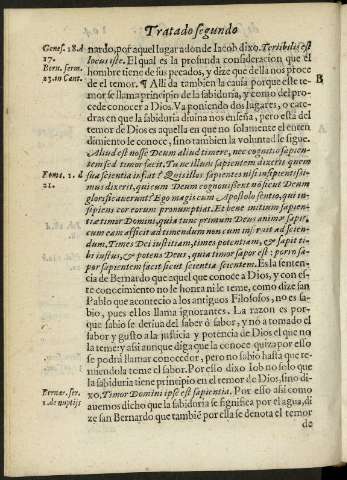 Tratado segundo
Genes. 28.d
17.
Bern. serm.
23. in Cant.
nardo, por aquel lugar adonde Iacob dixo. Terribilis est
locus iste. El qual es la profunda consideracion que el
hombre tiene de sus pecados, y dize que della nos proce
de el temor. ¶ Alli da tambien la causa porque este te-
B
mor se llama principio de la sabiduria, y como del pro-
cede conocer a Dios. Va poniendo dos lugares, o cate-
dras en que la sabiduria diuina nos enseña, pero está del
temor de Dios es aquella en que no solamente el enten
dimiento le conoce, sino tambien la voluntad se sigue.
Aliud est nosse Deum aliud timere, nec cognitio sapien-
tem sed timor facit. Tu ne illum sapientem dixeris quem
Roma. 1. d
21.
sua scientia inflat? Quis illos sapientes nisi insipientissi-
mus dixerit, qui cum Deum cognouissent nō sicut Deum
glorificauerunt? Ego magis cum Apostolo sentio, qui in-
sipiens cor eorum pronuntiat. Et bene initium sapien-
tiæ timor Domini, quia tunc primum Deus animæ sapit,
cum eam afficit ad timendum non cum instruit ad scien-
dum, Times Dei iustitiam, times potentiam, & sapit ti-
bi iustus, & potens Deus, quia timor sapor est: porro sa-
por sapientem facit sicut scientia scientem. Es la senten-
cia de Bernardo que aquel que conoce a Dios, y con es-
te conocimiento no le honra ni le teme, como dize san
Pablo que acontecio a los antiguos Filosofos, no es sa-
bio, pues el los llama ignorantes. La razon es por-
que sabio se deriua del saber ò sabor, y no a tomado el
sabor y gusto a la justicia y potencia de Dios el que no
la teme: y asi aunque diga que la conoce quiza por esso
se podrá llamar conocedor, pero no sabio hasta que te-
miendola tome el sabor. Por esso dixo Iob no solo que
la sabiduria tiene principio en el temor de Dios, sino di-
Bernar. ser.
1. de nuptijs
xo, Timor Domini ipse est sapientia. Por esso asi como
auemos dicho que la sabiduria se significa por el agua, di
ze san Bernardo que tambiē por ella se denota el temor
de